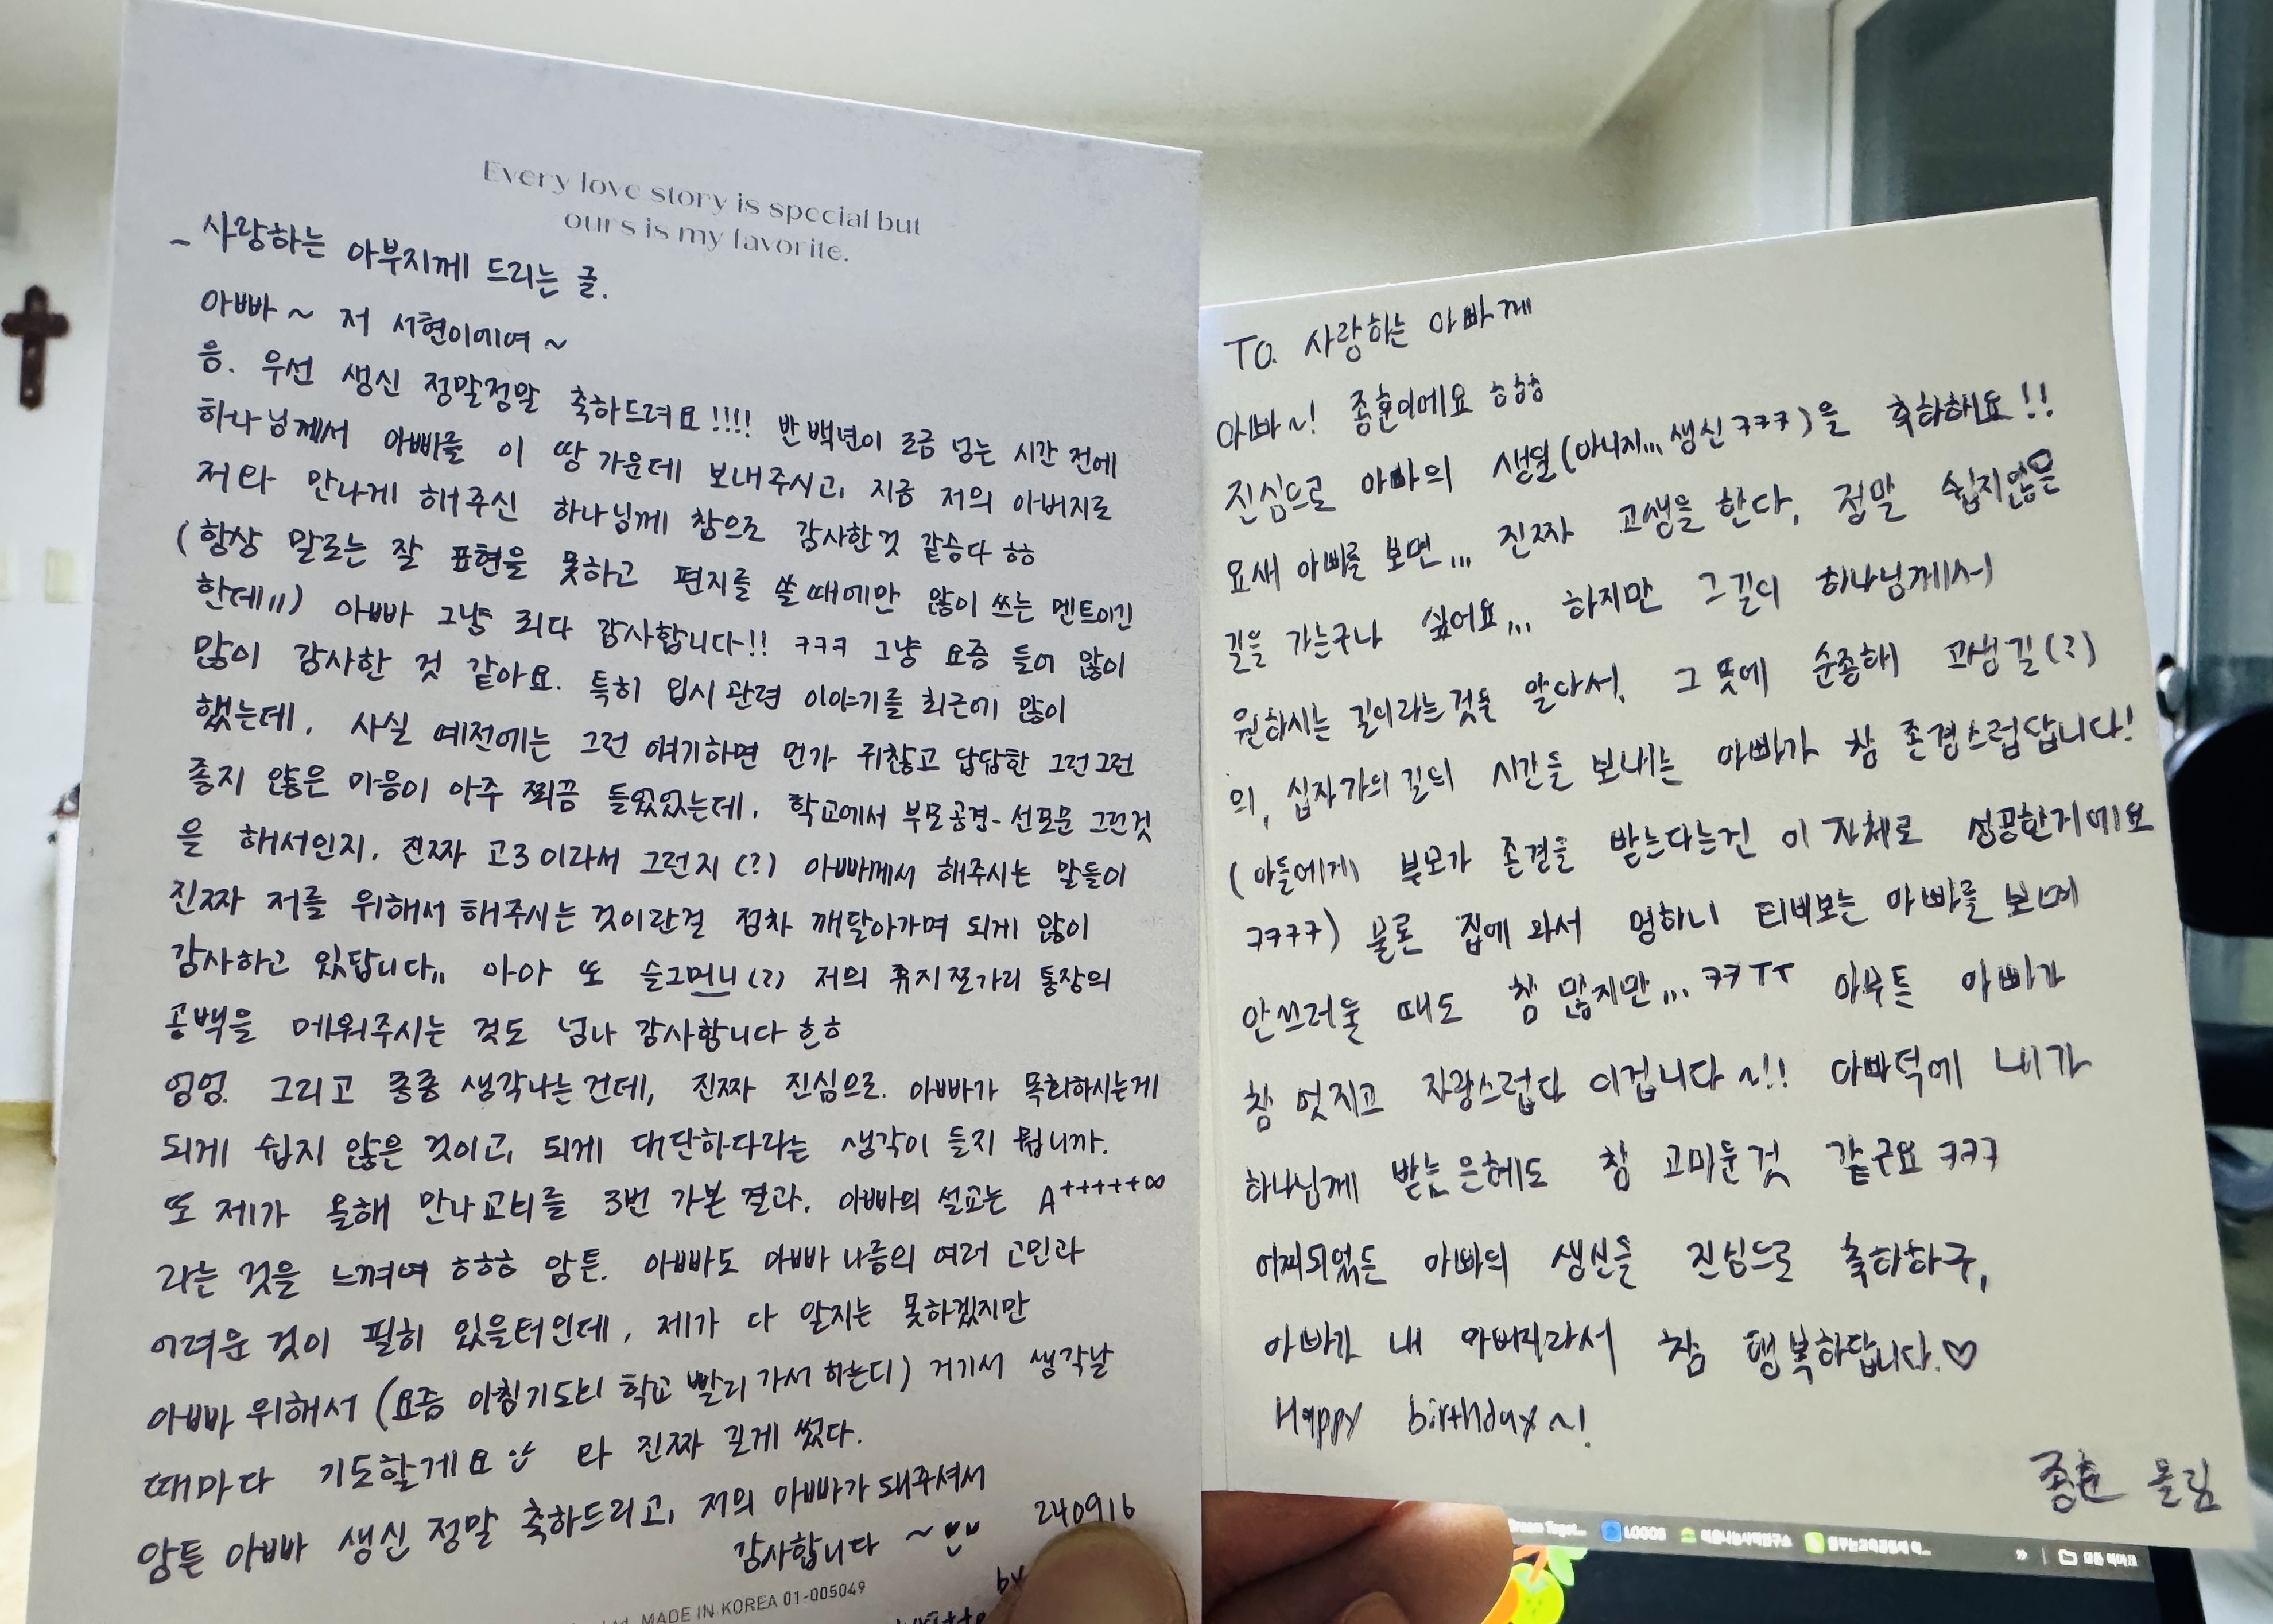 Every love story is special but
ours is my favorite.
_ 사랑하는 아부지께 드리는 글.
아빠~ 저 서현이에여~
음. 우선 생신 정말정말 축하드려요!!!! 반백년이 조금 넘는 시간 전에
하나님께서 아빠를 이 땅 가운데 보내주시고, 지금 저의 아버지로
저와 만나게 해주신 하나님께 참으로 감사한것 같슴다 ㅎㅎ
(항상 말로는 잘 표현을 못하고 편지를 쓸때에만 많이 쓰는 멘트이긴
한데,,) 아빠 그냥 최다 감사합니다!! ㅋㅋㅋ 그냥 요즘 들어 많이
많이 감사한 것 같아요. 특히 입시관련 이야기를 최근에 많이
했는데, 사실 예전에는 그런 얘기하면 먼가 귀찮고 답답한 그런그런
좋지 않은 마음이 아주 쬐끔 들었었는데, 학교에서 부모공경-선포문 그런것
을 해서인지, 진짜 고3이라서 그런지(?) 아빠께서 해주시는 말들이
진짜 저를 위해서 해주시는 것이란걸 점차 깨달아가며 되게 많이
감사하고 있답니다,, 아아 또 슬그머니(?) 저의 쥐지쪼가리 통장의
공백을 메워주시는 것도 넘나 감사합니다 흐흐
엄엄. 그리고 종종 생각나는건데, 진짜 진심으로. 아빠가 목회하시는게
되게 쉽지 않은 것이고, 되게 대단하다라는 생각이 들지 뭡니까.
또 제가 올해 만나교티를 3번 가본 결과, 아빠의 설교는 A+++++∞
라는 것을 느껴여 ㅎㅎㅎ 암튼. 아빠도 아빠 나름의 여러 고민과
어려운 것이 필히 있을터인데, 제가 다 알지는 못하겠지만
아빠 위해서 (요즘 아침기도회 학교 빨리 가서 하는디) 거기서 생각날
때마다 기도할게요 와 진짜 길게 썼다.
암튼 아빠 생신 정말 축하드리고, 저의 아빠가 돼주셔서
감사합니다 ~
240916
by
MADE IN KOREA 01-005049
TO. 사랑하는 아빠께
아빠~! 종훈이에요 ㅎㅎㅎ
진심으로 아빠의 생일(아니지... 생신ㅋㅋㅋ)을 축하해요!!
요새 아빠를 보면... 진짜 고생을 한다, 정말 쉽지않은
길을 가는구나 싶어요... 하지만 그길이 하나님께서
원하시는 길이라는것을 알아서, 그 뜻에 순종해 고생길(?)
의, 십자가의 길의 시간을 보내는 아빠가 참 존경스럽답니다!
(아들에게 부모가 존경을 받는다는건 이 자체로 성공한거에요
ㅋㅋㅋㅋ) 물론 집에 와서 멍하니 티비보는 아빠를 보며
안쓰러울 때도 참 많지만... ㅋㅋㅜㅜ 아무튼 아빠가
참 멋지고 자랑스럽다 이겁니다~!! 아빠덕에 내가
하나님께 받는 은혜도 참 고미운것 같군요 ㅋㅋㅋ
어찌되었든 아빠의 생신을 진심으로 축하하구,
아빠가 내 아버지라서 참 행복하답니다.♡
Happy birthday~!
종훈 올림
LOGOS
모든 북마크